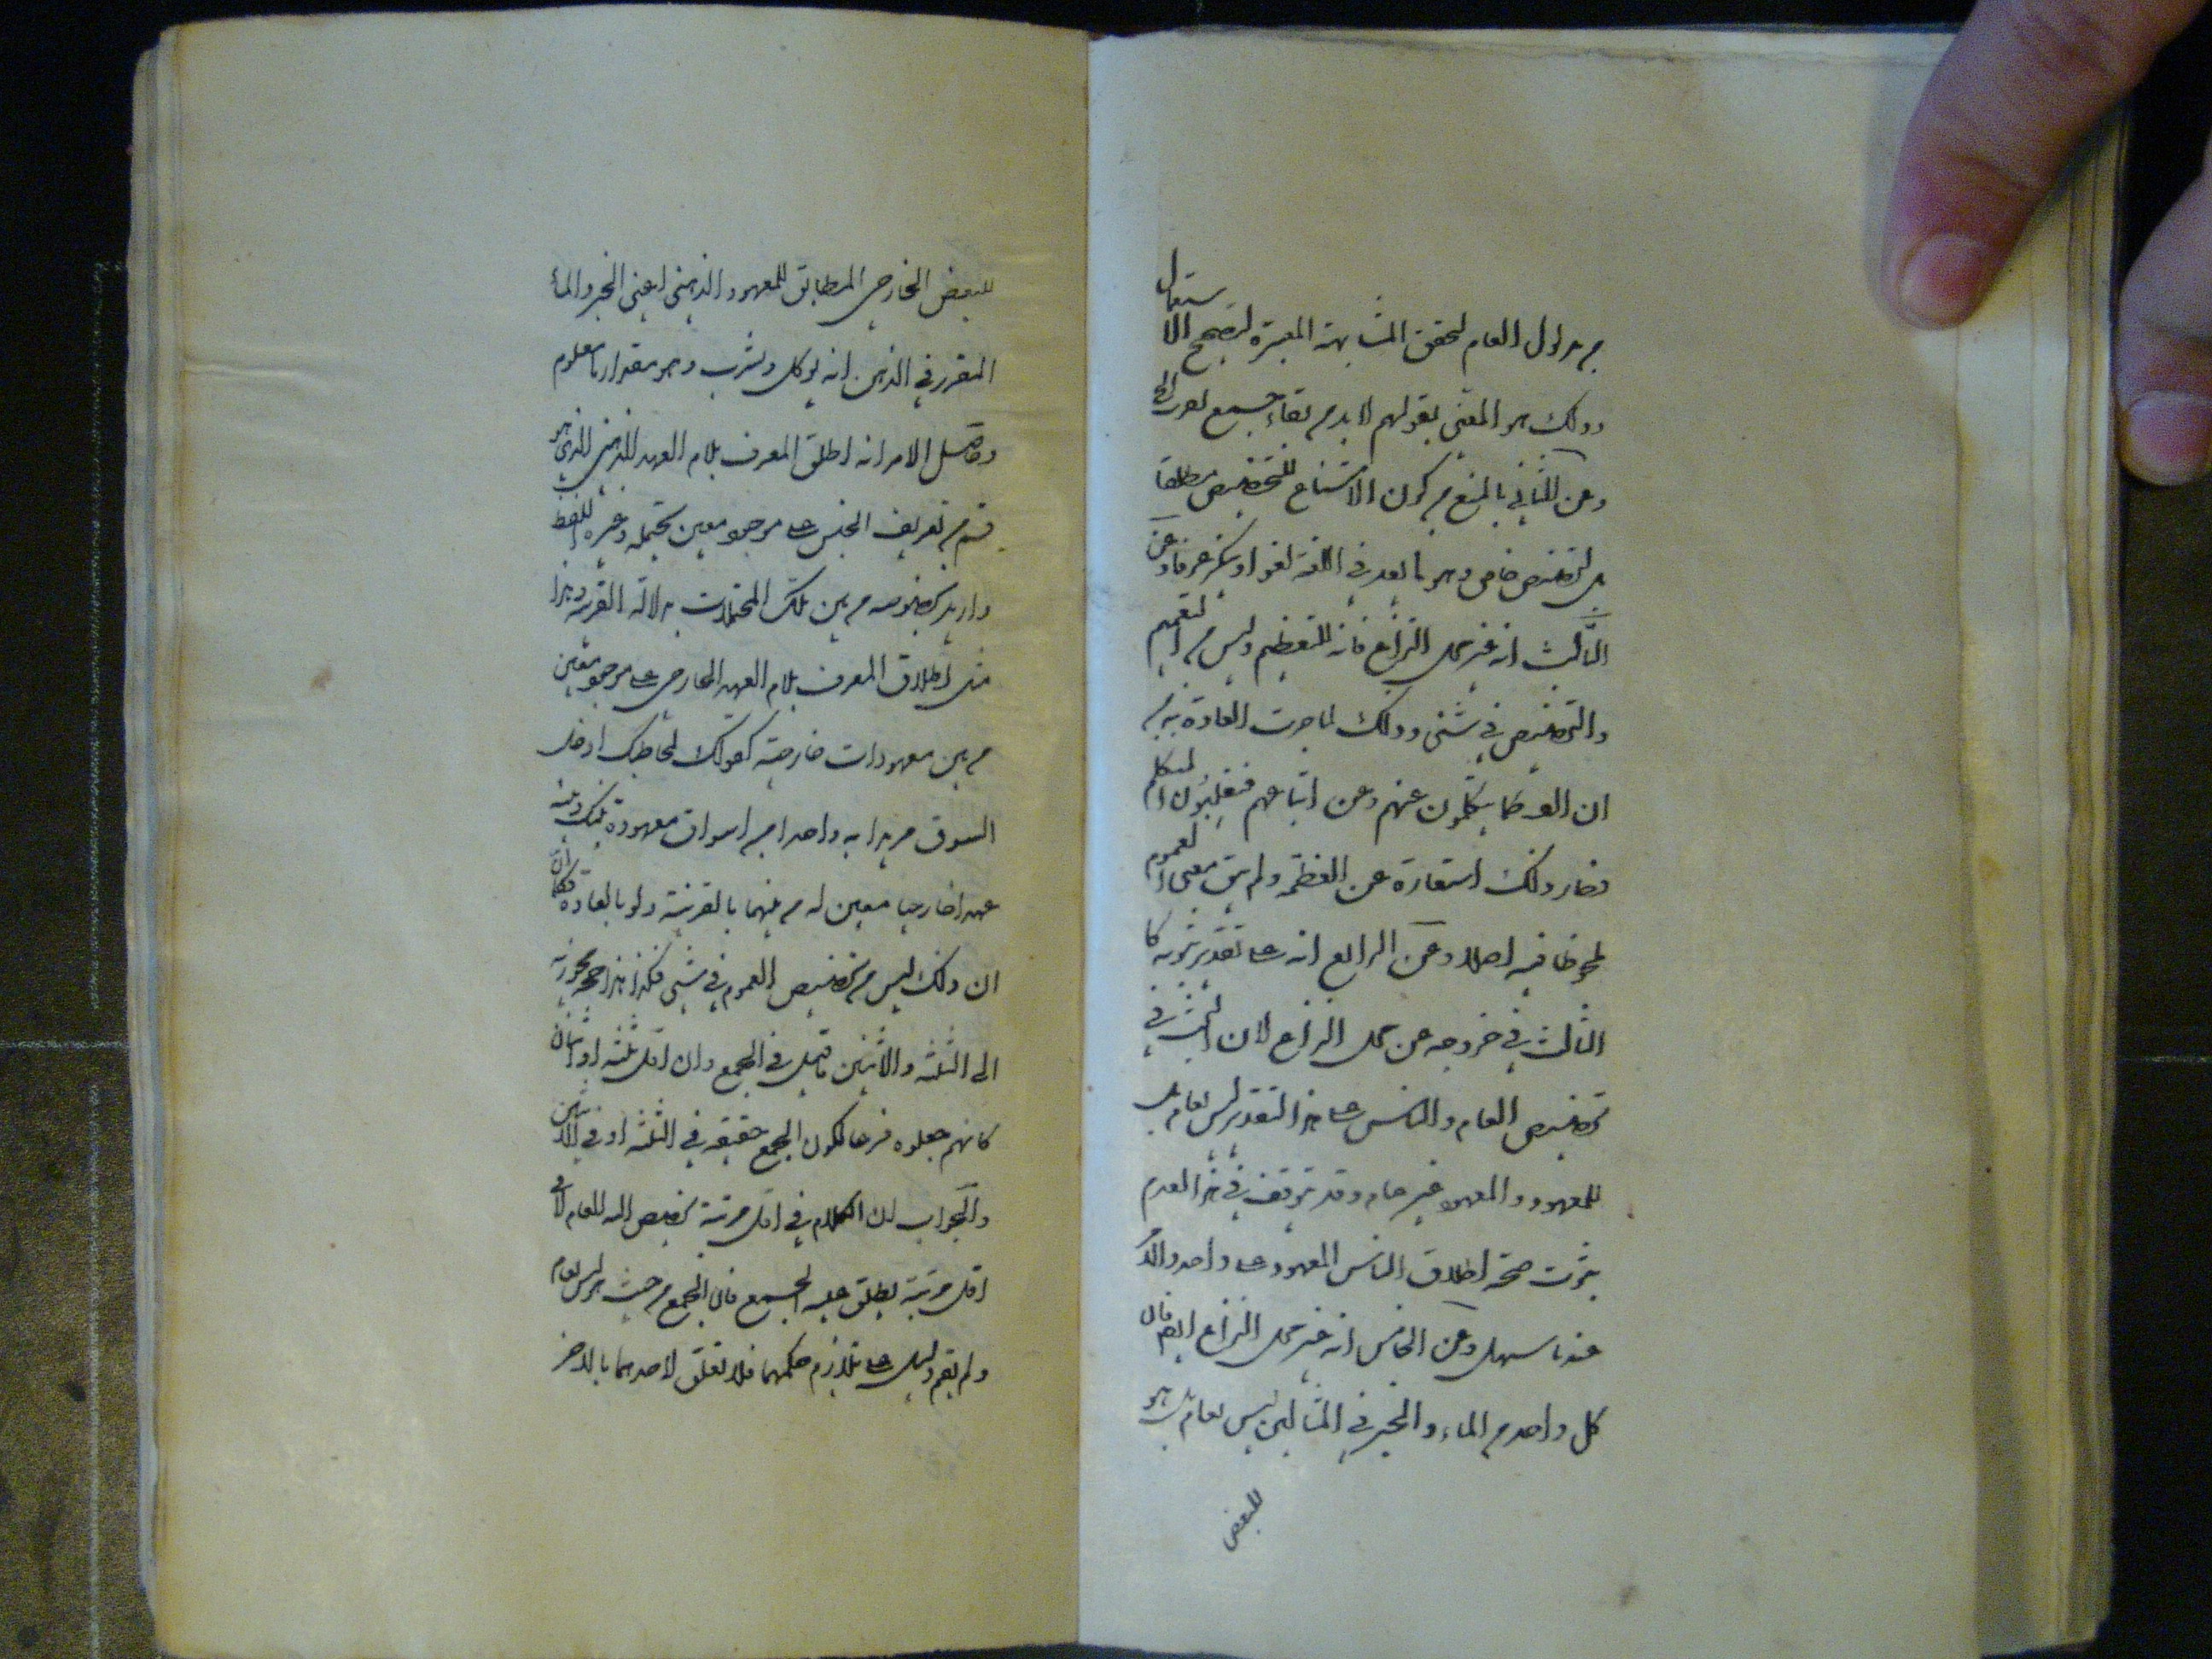 من مدلول العام لتحقق المشابهة المعتبرة لتصحيح الاستعمال
وذلك هو المعنى بقولهم لا بد من بقاء جمع يقرب الخ
وعن الثاني بالمنع من كون الامتناع للتخصيص مطلقا
بل لتخصيص خاص وهو ما يعد في اللغة لغوا وينكر عرفا وعن
الثالث انه غير محل النزاع فانه للتعظيم وليس من التعميم
والتخصيص في شئ وذلك لما جرت العادة به من
ان العظماء يتكلمون عنهم وعن اتباعهم فيغلبون المتكلم
فصار ذلك استعارة عن العظمة ولم يبق معنى العموم
ملحوظا فيه اصلا وعن الرابع انه على تقدير ثبوته كا
الثالث في خروجه عن محل النزاع لان البحث في
تخصيص العام والناس على هذا التقدير ليس بعام بل
للمعهود والمعهود غير عام وقد يتوقف في هذا لعدم
ثبوت صحة اطلاق الناس المعهود على واحد والامر
عندنا سهل وعن الخامس انه غير محل النزاع ايضا فان
كل واحد من الماء والخبز في المثالين ليس بعام بل هو
للبعض
للبعض الخارجي المطابق للمعهود الذهني اعني الخبز والماء
المقرر في الذهن انه يوكل ويشرب وهو مقدار ما معلوم
وحاصل الامر انه اطلق المعرف بلام العهد الذهني الذي هو
قسم من تعريف الجنس على موجود معين يحتمله وغيره اللفظ
واريد بخصوصه من بين تلك المحتملات بدلالة القرينة وهذا
مثل اطلاق المعرف بلام العهد الخارجي على موجود معين
من بين معهودات خارجية كقولك لمخاطبك ادخل
السوق مريدا به واحدا من اسواق معهودة بينك وبينه
عهدا خارجيا معين له من بينها بالقرينة ولو بالعادة فكما ان
ان ذلك ليس من تخصيص العموم في شئ فكذا هذا حجة مجوزيه
الى الثلثة والاثنين ما قيل في الجمع وان اقله ثلثة او اثنان
كانهم جعلوه فرعا لكون الجمع حقيقة في الثلثة او في الاثنين
والجواب ان الكلام في اقل مرتبة يخصص اليه العام لا في
اقل مرتبة يطلق عليه الجمع فان الجمع من حيث هو ليس بعام
ولم يقم دليل على تلازم حكمهما فلا تعلق لاحدهما بالاخر